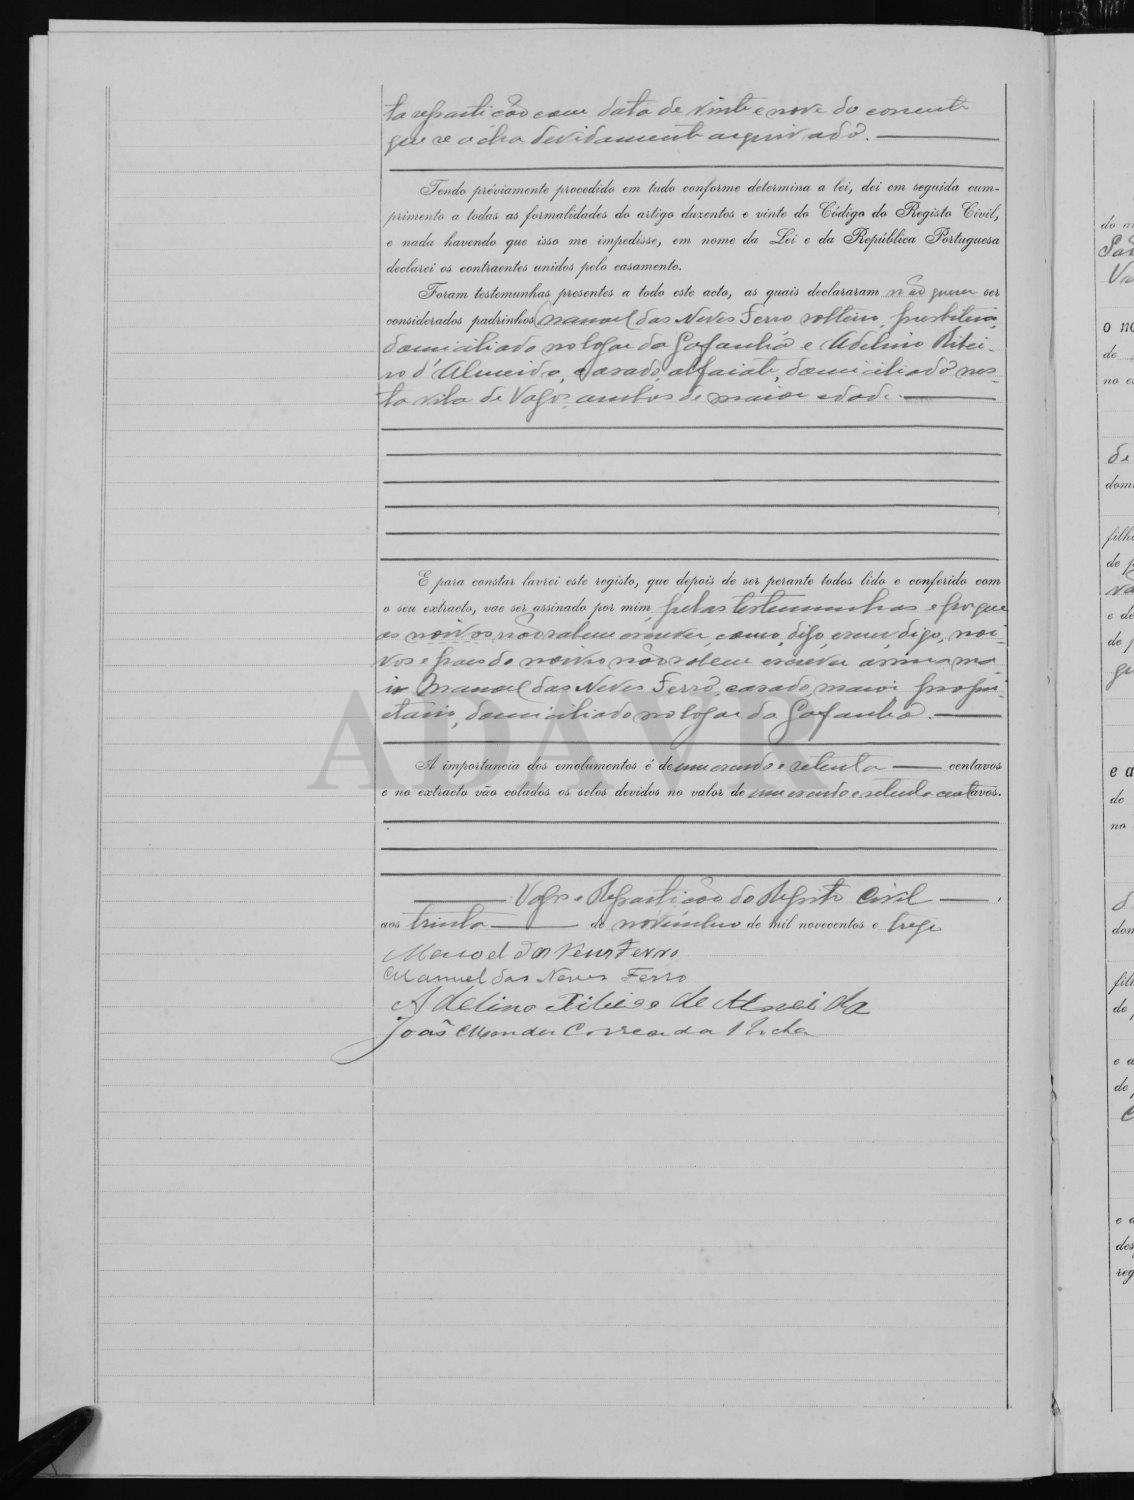 ta repartição com data de vinte e nove do corrente
que se acha devidamente arquivado.
Tendo préviamente procedido em tudo conforme determina a lei, dei em seguida cum-
primento a todas as formalidades do artigo duzentos e vinte do Código do Registo Civil,
e nada havendo que isso me impedisse, em nome da Lei e da República Portuguesa
declarei os contraentes unidos pelo casamento.
Foram testemunhas presentes a todo este acto, as quais declararam não querer ser
considerados padrinhos Manuel das Neves Ferro solteiro, presbitero,
domiciliado no logar da Gafanha e Adelino Ribei-
ro d'Almeida, casado, alfaiate, domiciliado nes-
ta vila de Vagos, ambos de maior edade.
E para constar lavrei este registo, que depois de ser perante todos lido e conferido com
o seu extracto, vae ser assinado por mim, pelas testemunhas e por que
os noivos não sabem escrever, como, digo, escrever digo, noi-
vos e paes do noivo não sabem escrever assina
Manuel das Neves Ferro, casado, maior propri-
etario, domiciliado no logar da Gafanha.
A importancia dos emolumentos é de um escudo e setenta centavos
e no extracto vão colados os selos devidos no valor de um escudo e setenta centavos.
Vagos e Repartição do Registo Civil
aos trinta de novembro de mil novecentos e treze
Manoel das Neves Ferro
Manuel das Neves Ferro
Adelino Ribeiro de Almeida
João Mendes Correia da Rocha
ADAVR